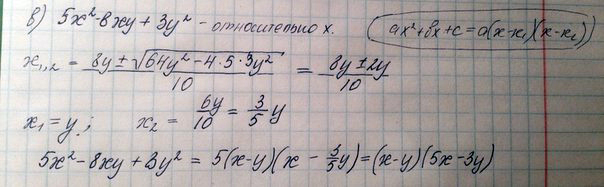 в) 5x² - 8xy + 3y² - относительно x. (ax²+bx+c = a(x-x₁)(x-x₂))
x₁,₂ = (8y ± √(64y² - 4·5·3y²))/10 = (8y ± 2y)/10
x₁ = y; x₂ = 6y/10 = 3/5 y
5x² - 8xy + 3y² = 5(x-y)(x - 3/5 y) = (x-y)(5x-3y)